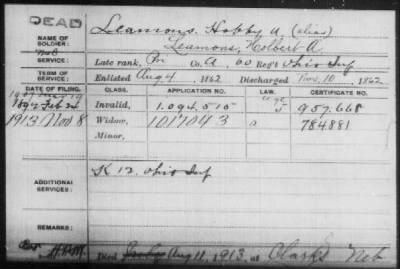 DEAD
NAME OF SOLDIER:
Leamons, Hobby A. (alias)
Leamons, Holbert A
SERVICE:
Late rank, Pvt Co. A, 60 Reg't Ohio Inf
TERM OF SERVICE:
Enlisted Aug 4, 1862 Discharged Nov. 10, 1862
DATE OF FILING. CLASS. APPLICATION NO. LAW. CERTIFICATE NO.
1897 Feb 24 Invalid, 1.094.515 957.668
1913 Nov 8 Widow, 1017043 a 784881
Minor,
ADDITIONAL SERVICES:
K 12. Ohio Inf
REMARKS:
Died Aug 11, 1913, at Clarks Neb